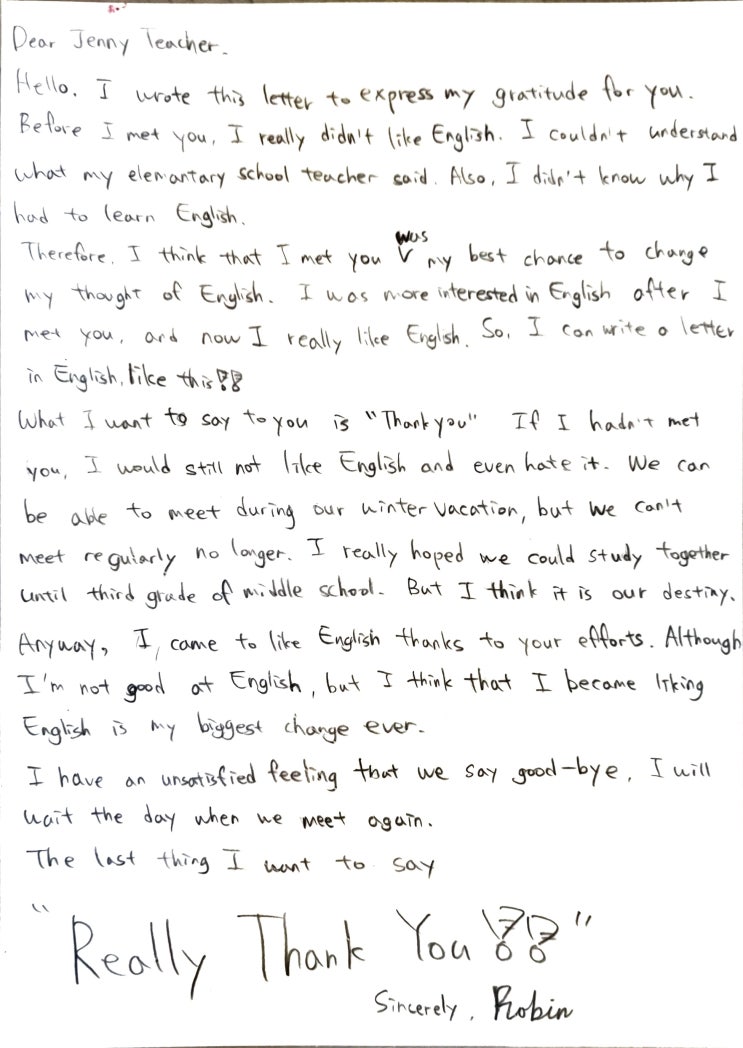 Dear Jenny Teacher.
Hello. I wrote this letter to express my gratitude for you.
Before I met you, I really didn't like English. I couldn't understand
what my elemantary school teacher said. Also, I didn't know why I
had to learn English.
Therefore, I think that I met you was my best chance to change
my thought of English. I was more interested in English after I
met you, and now I really like English. So, I can write a letter
in English, like this!!
What I want to say to you is "Thank you" If I hadn't met
you, I would still not like English and even hate it. We can
be able to meet during our winter vacation, but we can't
meet regularly no longer. I really hoped we could study together
until third grade of middle school. But I think it is our destiny.
Anyway, I, came to like English thanks to your efforts. Although
I'm not good at English, but I think that I became liking
English is my biggest change ever.
I have an unsatisfied feeling that we say good-bye, I will
wait the day when we meet again.
The last thing I want to say
"Really Thank You!!"
Sincerely, Robin